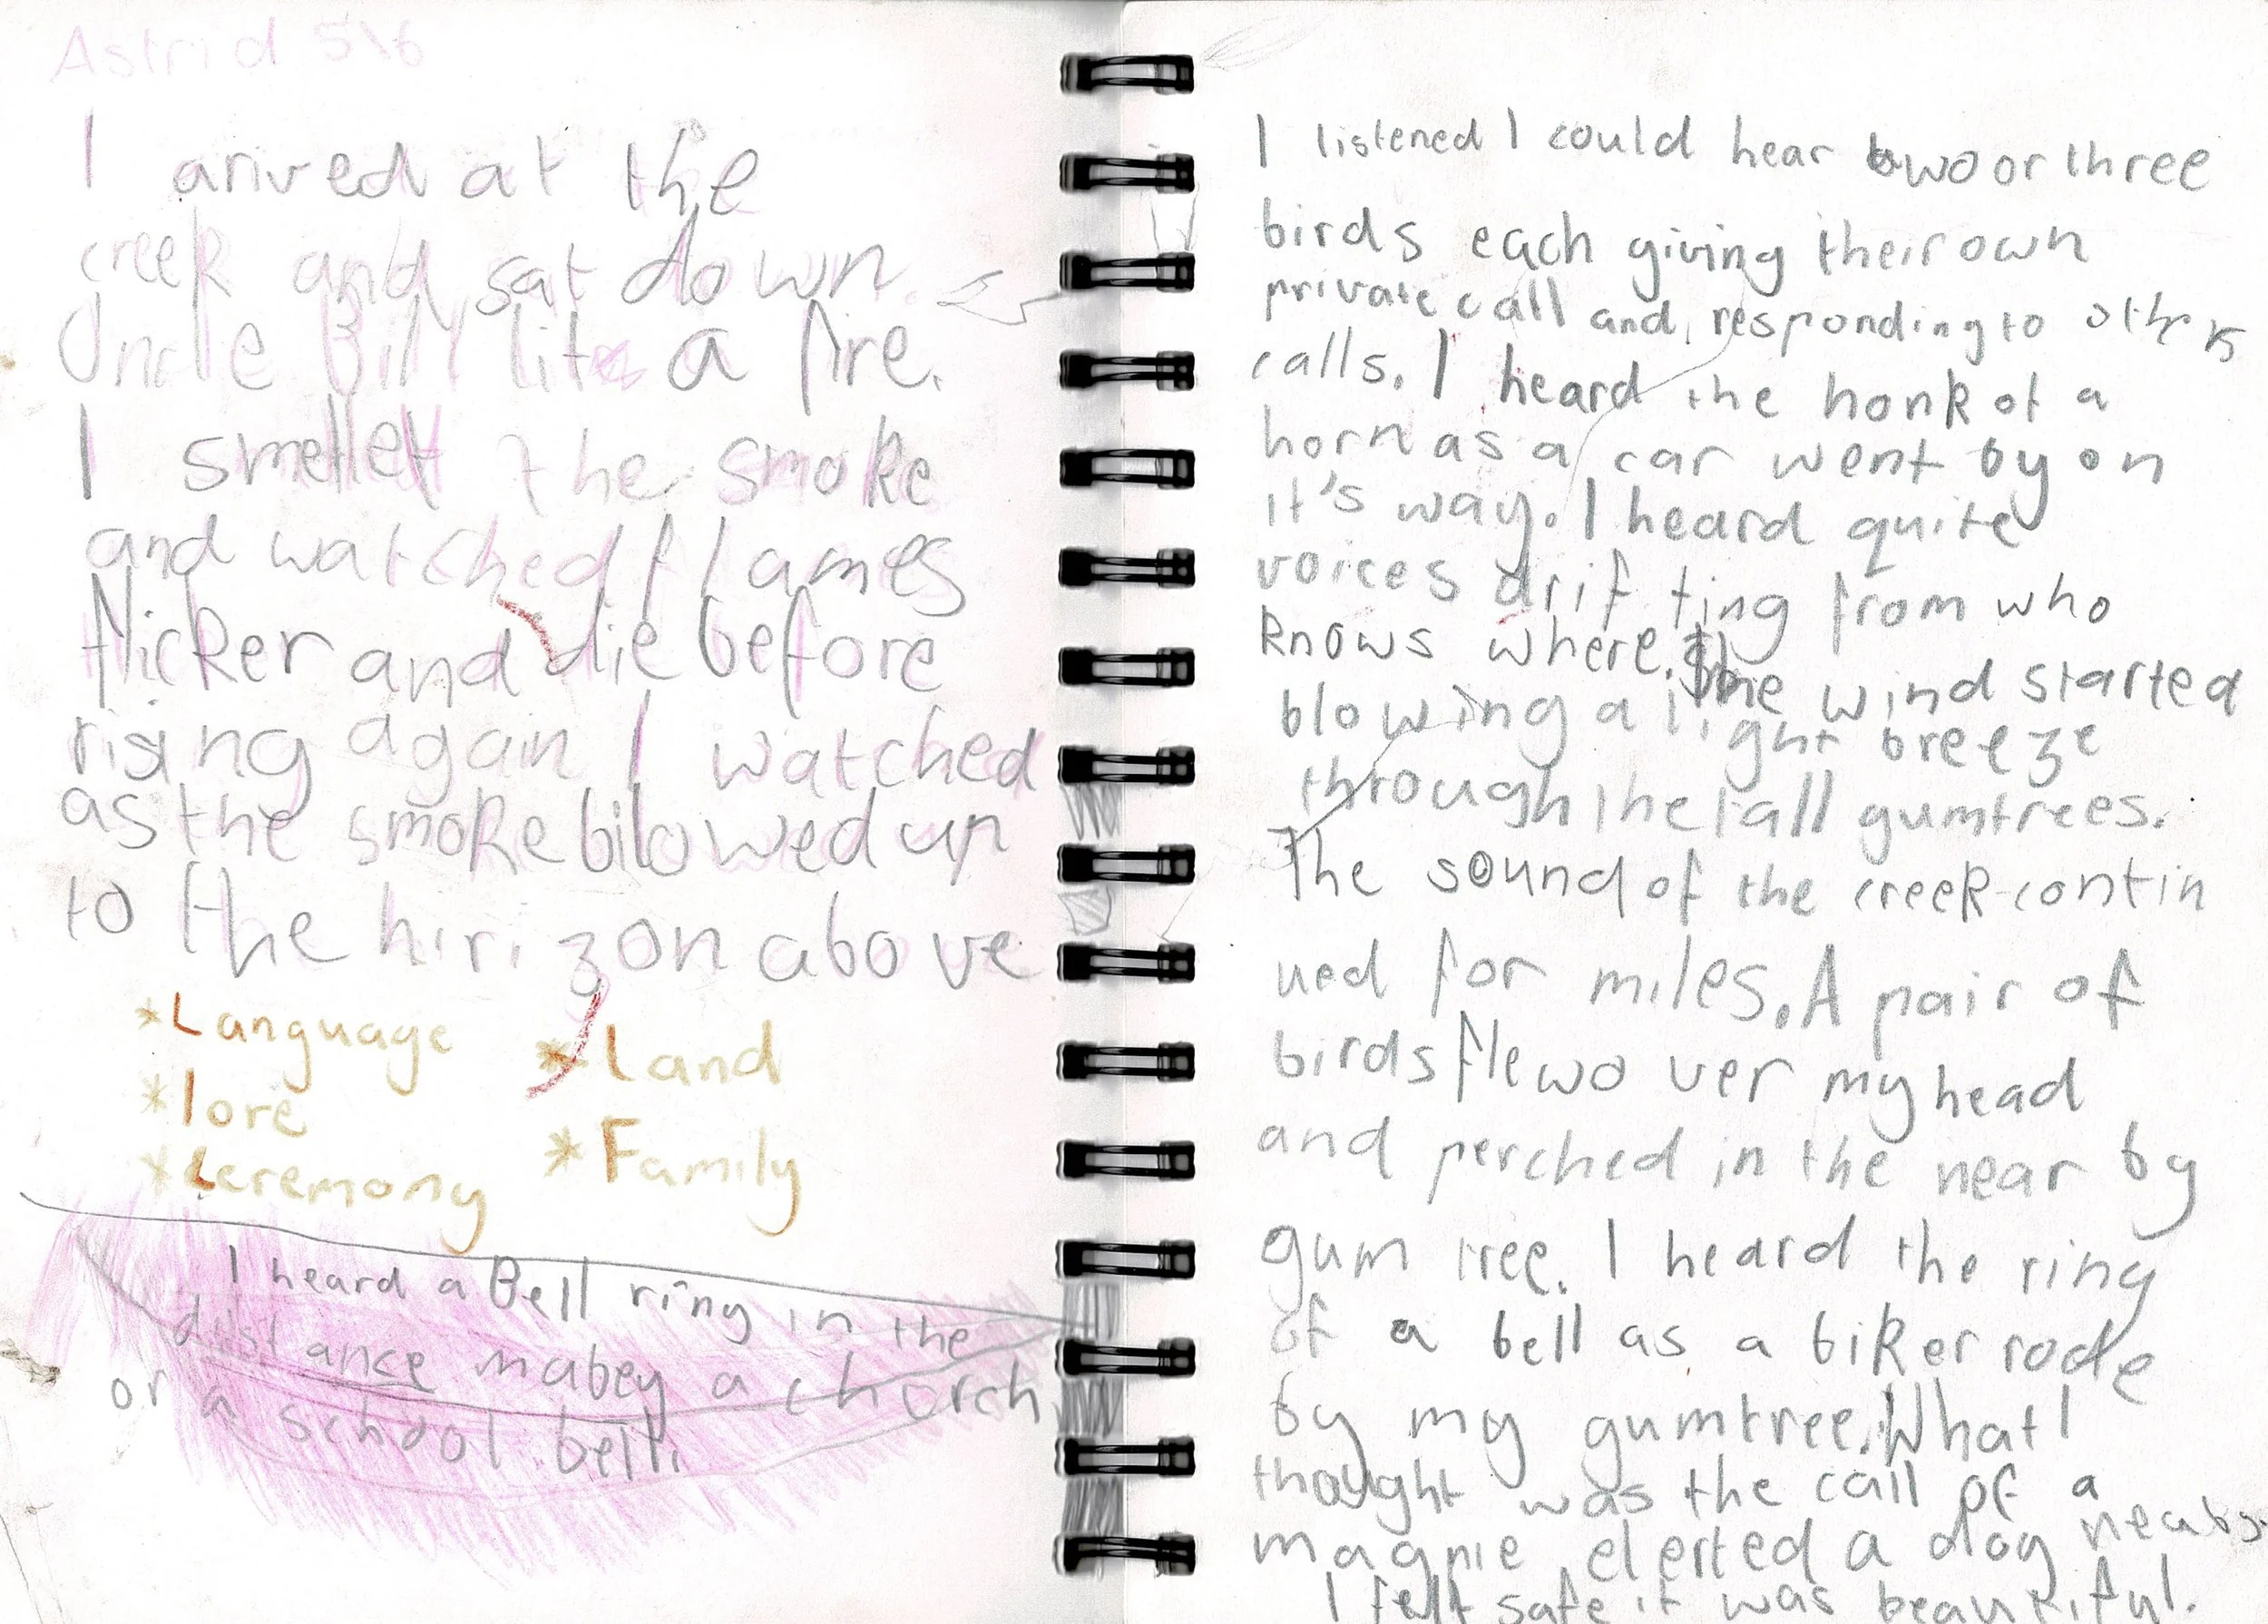 Astrid 5\6
I arived at the
creek and sat down.
Uncle Bill lit a fire.
I smellet the smoke
and watched flames
flicker and die before
rising again I watched
as the smoke bilowed up
to the hirizon above
*Language
*lore
*Ceremony
*Land
*Family
I heard a Bell ring in the
distance mabey a chorch
or a school bell.
I listened I could hear two or three
birds each giving their own
private call and responding to others
calls. I heard the honk of a
horn as a car went by on
it's way. I heard quite
voices drifting from who
knows where. The wind started
blowing a light breeze
through the tall gumtrees.
The sound of the creek contin
ued for miles. A pair of
birds flew over my head
and perched in the near by
gum tree. I heard the ring
of a bell as a biker rode
by my gumtree. What I
thought was the call of a
magpie elerted a dog neaby.
I felt safe it was beautiful.